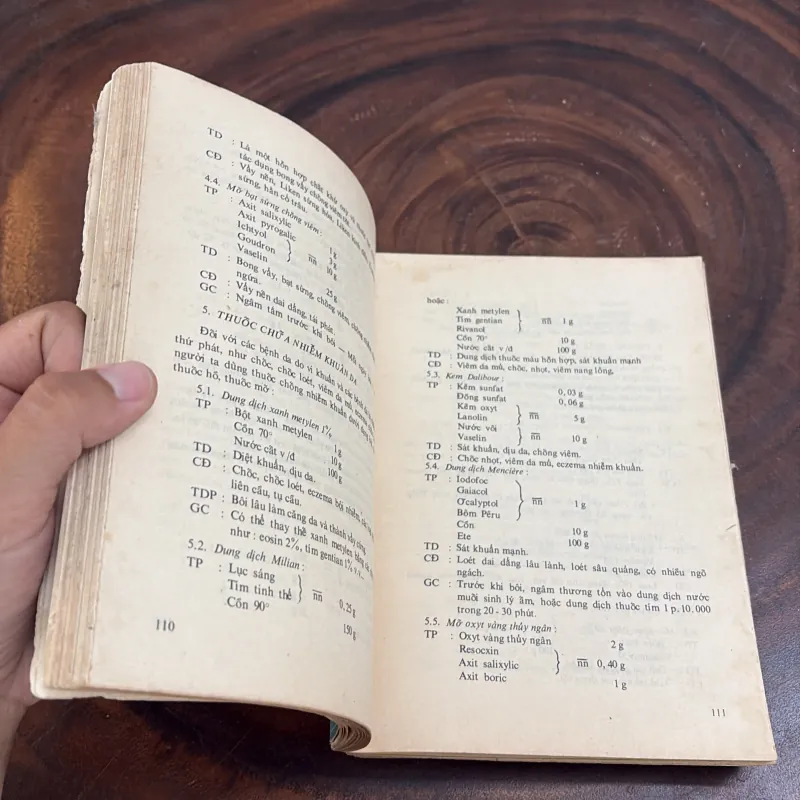 TD : Là một hỗn hợp chất khử oxy
tác dụng bong vẩy chống viêm
CĐ : Vẩy nến, Liken sừng hóa, Liken
sừng, hằn cổ trâu.
4.4. Mỡ bạt sừng chống viêm :
TP : Axit salixylic 1 g
Axit pyrogalic 3 g
Ichtyol
Goudron n̄n̄ 10 g
Vaselin 25 g
TD : Bong vẩy, bạt sừng, chống viêm, chống
ngứa.
CĐ : Vẩy nến dai dẳng, tái phát.
GC : Ngâm tắm trước khi bôi — Mỗi
5. THUỐC CHỮA NHIỄM KHUẨN DA
Đối với các bệnh da do vi khuẩn và các bệnh
thứ phát, như chốc, chốc loét, viêm da mủ, eczema
người ta dùng thuốc chống nhiễm khuẩn dưới dạng
thuốc hồ, thuốc mỡ :
5.1. Dung dịch xanh metylen 1%
TP : Bột xanh metylen 1 g
Cồn 70° 10 g
Nước cất v/đ 100 g
TD : Diệt khuẩn, dịu da.
CĐ : Chốc, chốc loét, eczema bội nhiễm,
liên cầu, tụ cầu.
TDP : Bôi lâu làm căng da và thành vẩy cứng.
GC : Có thể thay thế xanh metylen bằng các
như : eosin 2%, tím gentian 1%
5.2. Dung dịch Milian :
TP : Lục sáng
Tím tinh thể n̄n̄ 0,25 g
Cồn 90° 150 g
110
hoặc :
Xanh metylen
Tím gentian n̄n̄ 1 g
Rivanol
Cồn 70° 10 g
Nước cất v/đ 100 g
TD : Dung dịch thuốc màu hỗn hợp, sát khuẩn mạnh
CĐ : Viêm da mủ, chốc, nhọt, viêm nang lông.
5.3. Kem Dalibour :
TP : Kẽm sunfat 0,03 g
Đồng sunfat 0,06 g
Kẽm oxyt
Lanolin n̄n̄ 5 g
Nước vôi
Vaselin n̄n̄ 10 g
TD : Sát khuẩn, dịu da, chống viêm.
CĐ : Chốc nhọt, viêm da mủ, eczema nhiễm khuẩn.
5.4. Dung dịch Mencière :
TP : Iodofoc
Gaiacol
Ơcalyptol n̄n̄ 1 g
Bôm Pêru
Cồn 10 g
Ete 100 g
TD : Sát khuẩn mạnh.
CĐ : Loét dai dẳng lâu lành, loét sâu quảng, có nhiều ngõ
ngách.
GC : Trước khi bôi, ngâm thương tổn vào dung dịch nước
muối sinh lý ấm, hoặc dung dịch thuốc tím 1 p.10.000
trong 20 - 30 phút.
5.5. Mỡ oxyt vàng thủy ngân :
TP : Oxyt vàng thủy ngân 2 g
Resocxin
Axit salixylic n̄n̄ 0,40 g
Axit boric 1 g
111